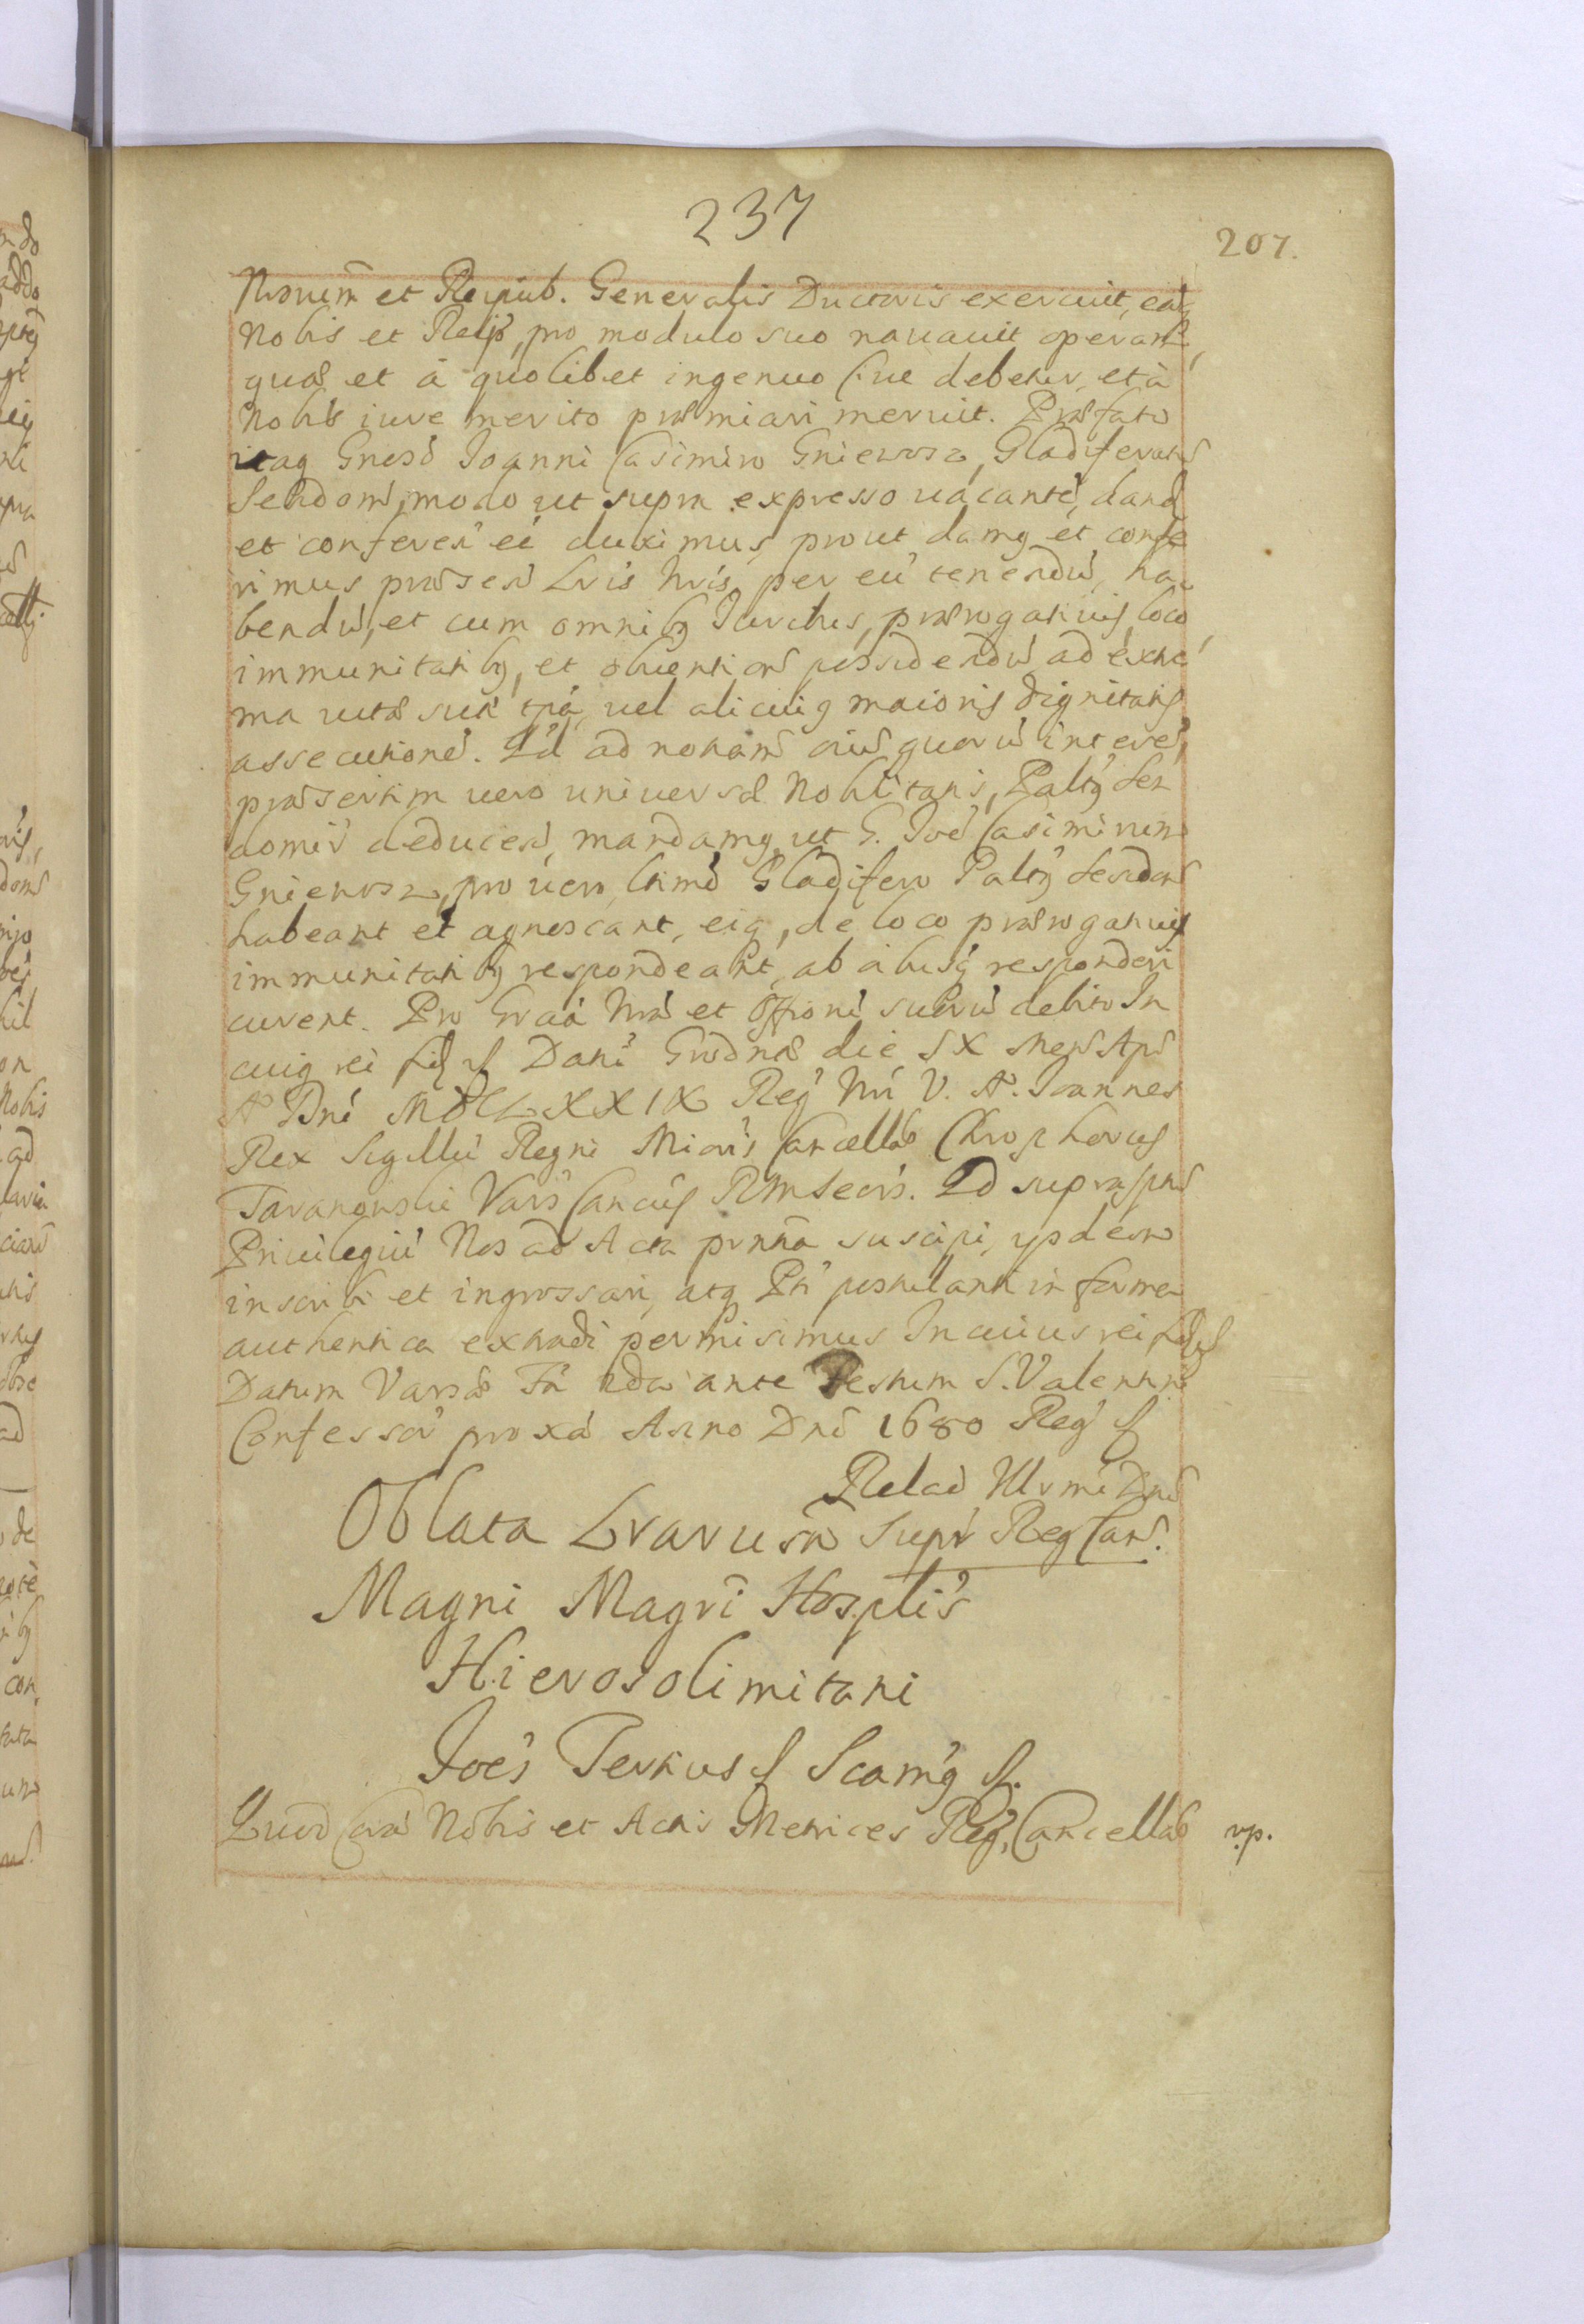 237
207.
Nrorum et Reipub. Generalis Ductoris exercuit, eaq,
Nobis et Reip, pro modulo suo nauauit operam
quæ et à quolibet ingenuo siue debetur, et à
Nobis iure merito præmiari meruit. Præfato
itaq Gneso Joanni Casimiro Gniewosz, Gladiferatu
Sendom, modo ut supra expresso uacante, dand
et conferen ei duximus, prout damq et confe
rimus præsen Lris Nris, per eu tenendu, ha
bendu, et cum omnibq Juribus, prærogatiuis loco
immunitatibq, et obuention possidendu ad extre
ma uitæ suæ tpa, uel alicuiq maioris dignitatis
assecutione. Qd ad notiam oiu quoru interes,
præsertim uero uniuersæ Nobilitatis, Paltq Sen
domir deducen, mandamq ut G. Joe Casimirum
Gniewosz, pro uero ltimo Gladifero Paltq Sendom
habeant et agnoscant, eiq, de loco prærogatiuis
immunitatibq respondeant, ab aliisq responderi
curent. Pro Graa Nra et Offioru suoru debito In
cuiq rei fid Dan Grodnæ die IX Mens Apr
A Dni MDCLXXIX Reg Nri V. A. Joannes
Rex Sigillu Regni Mioris Cancellae Chrophorus
Taranowski Vars Cancus RMSecris. Qd suprascpnd
Priuilegiu Nos ad Acta pnntia suscipi, ysdem
inscribi et ingrossari, atq Pti postulanti in forma
authentica extradi permisimus In cuius rei fid
Datum Varsæ Fa 2da ante Festum S. Valentini
Confessor proxa Anno Dni 1680 Reg
Relao Illrmi Dni
Oblata Lrarum Supr Reg Can.
Magni Magri Hosplis
Hierosolimitani
Joes Tertius Scamq
Quod cora Nobis et Actis Metrices Reg, Cancellae